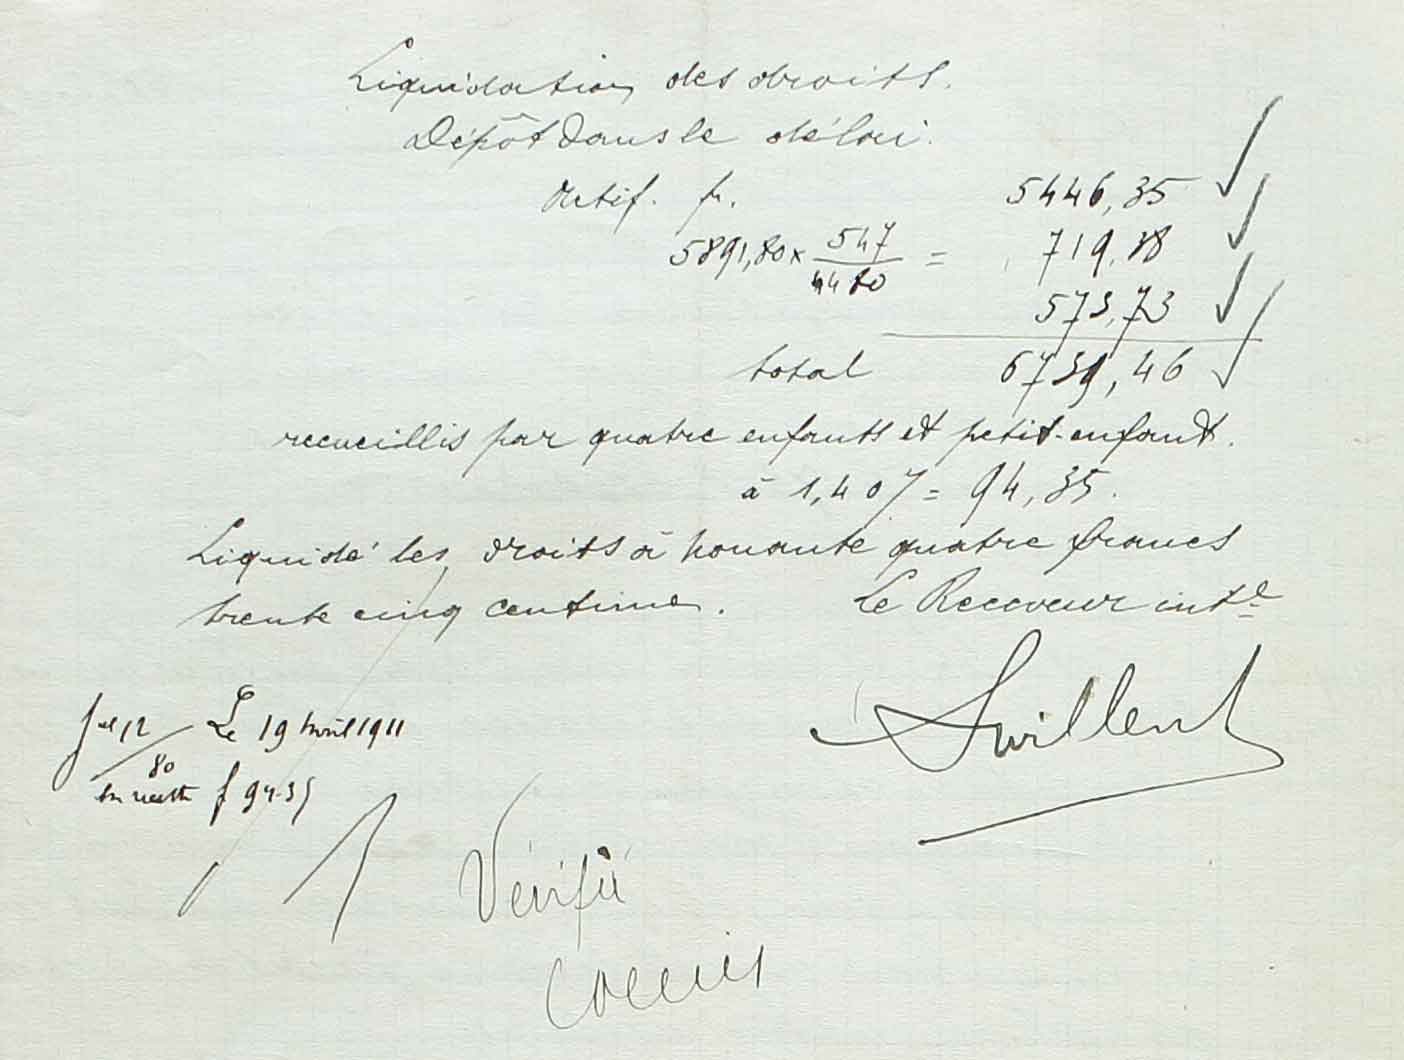 Liquidation des droits.
Dépôt dans le délai.
Actif. fr. 5446,35
5891,80 x 547/4480 = 719,38
573,73
total 6739,46
recueillis par quatre enfants et petit-enfant.
à 1,40 % = 94,35.
Liquidé les droits à nonante quatre francs
trente cinq centimes. Le Receveur int.e
Le 19 Avril 1911
80
f 94.35
Vérifié